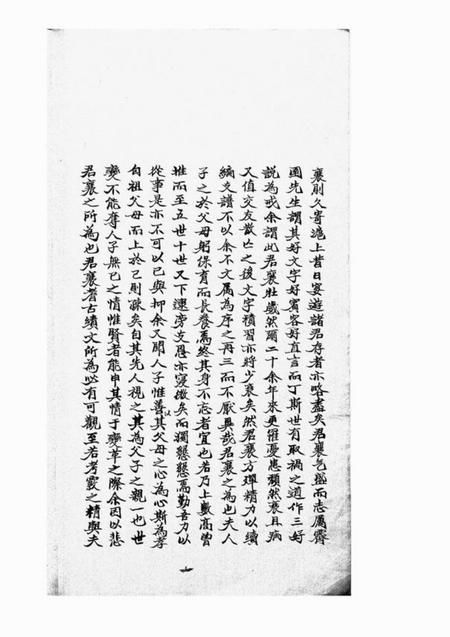 襄則久寄滬上昔日宴遊諸君存者亦略盡矣君襄氣盛而志厲霽
園先生謂其好文字好賓客好直言而丁斯世有取禍之道作三好
説為戒余謂此君襄壯歲然爾二十余年來更罹憂患頽然衰且病
又值交友散亡之後文字積習亦將少衰矣然君襄方殫精力以續
編文譜不以余不文属為序之再三而不厭異哉君襄之為也夫人
子之於父母躬保育而長養焉終其身不忘者宜也若乃上數高曾
推而至五世十世又下逮旁支恩亦寖微矣而獨懃懃焉勤吾力以
從事是亦不可以已與抑余又聞人子惟善其父母之心為心斯為孝
自祖父母而上於己則疎矣自其先人視之其為父子之親一也世
變不能奪人子無已之情惟賢者能申其情于變革之際余因以悲
君襄之所為也君襄耆古績文所為必有可觀至若考覈之精與夫
一